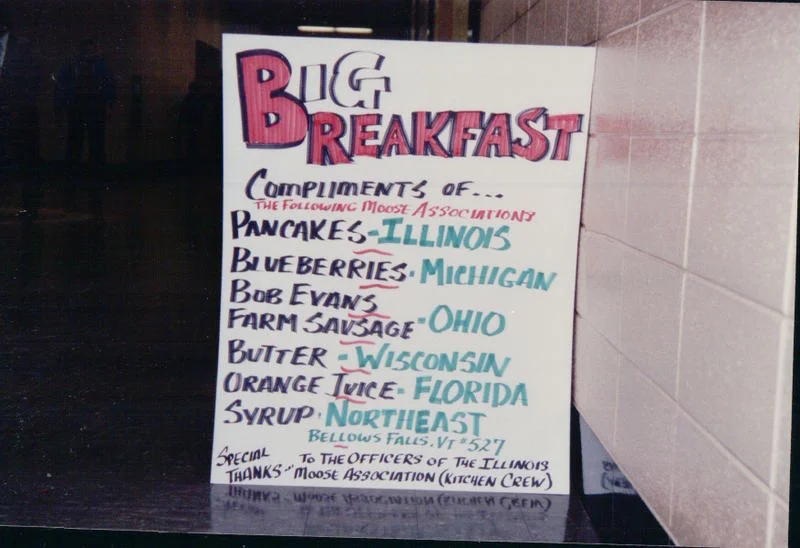 BIG
BREAKFAST
COMPLIMENTS OF...
THE FOLLOWING MOOSE ASSOCIATIONS
PANCAKES - ILLINOIS
BLUEBERRIES - MICHIGAN
BOB EVANS
FARM SAUSAGE - OHIO
BUTTER - WISCONSIN
ORANGE JUICE - FLORIDA
SYRUP - NORTHEAST
BELLOWS FALLS, VT #527
SPECIAL THANKS -- TO THE OFFICERS OF THE ILLINOIS
MOOSE ASSOCIATION (KITCHEN CREW)